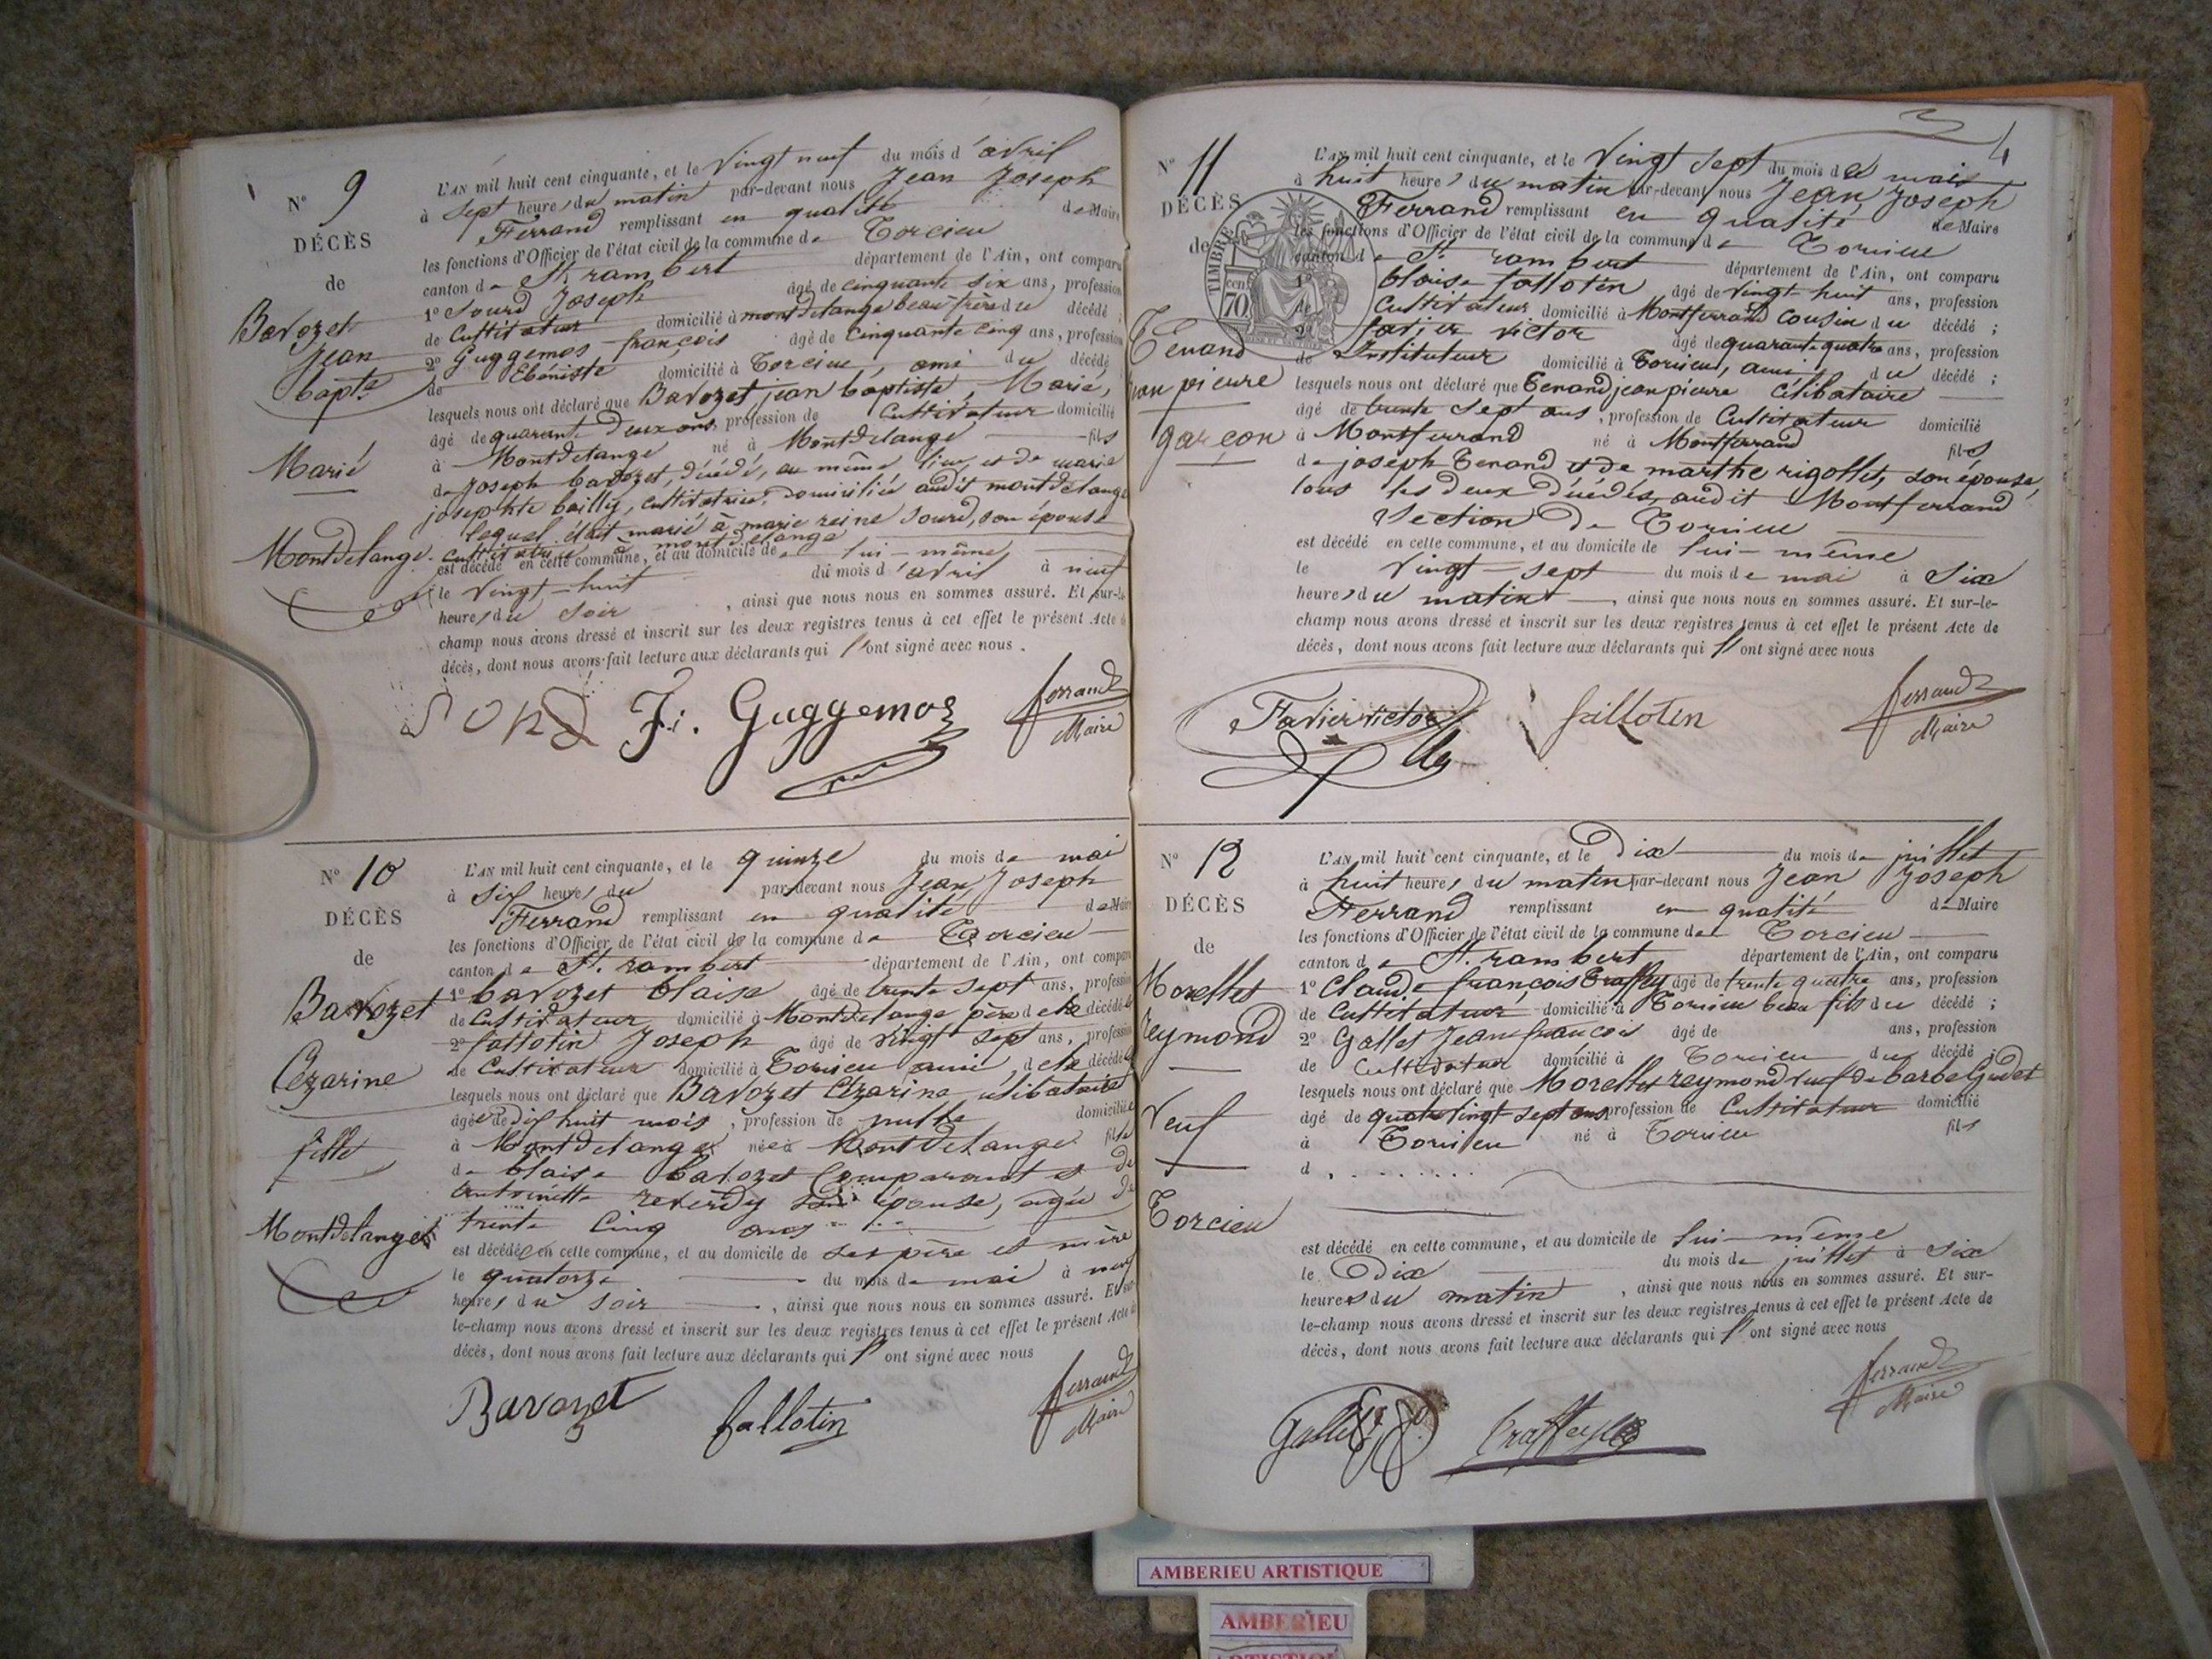 N° 9
DÉCÈS
de
Bavozet
Jean
bapte
Marié
Montdelange.
L'AN mil huit cent cinquante, et le Vingt neuf du mois d'avril
à sept heures du matin par-devant nous Jean Joseph
Ferrand remplissant en qualité de Maire
les fonctions d'Officier de l'état civil de la commune de Torcieu
canton de St. rambert département de l'Ain, ont comparu
1° Sourd Joseph âgé de cinquante six ans, profession
de Cultivateur domicilié à montdelange beau frère du décédé ;
2° Guggemos françois âgé de cinquante cinq ans, profession
de Ebéniste domicilié à Torcieu, ami du décédé
lesquels nous ont déclaré que Bavozet jean baptiste, Marié,
âgé de quarante deux ans, profession de Cultivateur domicilié
à Montdelange né à Montdelange fils
de Joseph bavozet, décédé, au même lieu, et de marie
josephte bailly, cultivatrice, domiciliée audit montdelange
lequel était marié à marie reine Sourd, son épouse
cultivatrice à montdelange
est décédé en cette commune, et au domicile de lui-même
le Vingt-huit du mois d'avril à neuf
heures du soir, ainsi que nous nous en sommes assuré. Et sur-le-
champ nous avons dressé et inscrit sur les deux registres tenus à cet effet le présent Acte de
décès, dont nous avons fait lecture aux déclarants qui l'ont signé avec nous.
F. Guggemos
ferrand
Maire
N° 10
DÉCÈS
de
Bavozet
Cézarine
fille
Montdelange
L'AN mil huit cent cinquante, et le quinze du mois de mai
à six heures du par-devant nous Jean Joseph
Ferrand remplissant en qualité de Maire
les fonctions d'Officier de l'état civil de la commune de Torcieu
canton de St. rambert département de l'Ain, ont comparu
1° bavozet blaise âgé de trente sept ans, profession
de Cultivateur domicilié à Montdelange père de la décédée
2° fallotin Joseph âgé de vingt sept ans, profession
de Cultivateur domicilié à Torcieu ami de la décédée
lesquels nous ont déclaré que Bavozet Cézarine, célibataire
âgée de dix huit mois, profession de nulle domiciliée
à Montdelange née à Montdelange fille
de blaise bavozet Comparant et de
antoinette reverdy son épouse, agée de
trente Cinq ans
est décédée en cette commune, et au domicile de ses père et mère
le quatorze du mois de mai à neuf
heures du soir, ainsi que nous nous en sommes assuré. Et sur-
le-champ nous avons dressé et inscrit sur les deux registres tenus à cet effet le présent Acte de
décès, dont nous avons fait lecture aux déclarants qui l'ont signé avec nous
Bavozet
fallotin
ferrand
Maire
4
N° 11
DÉCÈS
de
TIMBRE
70
Tenand
jean pierre
garçon
L'AN mil huit cent cinquante, et le Vingt sept du mois de mai
à huit heures du matin par-devant nous Jean Joseph
Ferrand remplissant en qualité de Maire
les fonctions d'Officier de l'état civil de la commune de Torcieu
canton de St rambert département de l'Ain, ont comparu
1° blaise fallotin âgé de vingt-huit ans, profession
de Cultivateur domicilié à Montferrand cousin du décédé ;
2° favier victor âgé de quarante quatre ans, profession
de Instituteur domicilié à Torcieu, ami du décédé ;
lesquels nous ont déclaré que Tenand jean pierre célibataire
âgé de trente sept ans, profession de Cultivateur domicilié
à Montferrand né à Montferrand fils
de joseph Tenand et de marthe rigollet, son épouse,
tous les deux décédés audit Montferrand
Section de Torcieu
est décédé en cette commune, et au domicile de lui-même
le Vingt-sept du mois de mai à Six
heures du matin, ainsi que nous nous en sommes assuré. Et sur-le-
champ nous avons dressé et inscrit sur les deux registres tenus à cet effet le présent Acte de
décès, dont nous avons fait lecture aux déclarants qui l'ont signé avec nous
Favier victor
fallotin
ferrand
Maire
N° 12
DÉCÈS
de
Morellet
reymond
Veuf
Torcieu
L'AN mil huit cent cinquante, et le Dix du mois de juillet
à huit heures du matin par-devant nous Jean Joseph
Ferrand remplissant en qualité de Maire
les fonctions d'Officier de l'état civil de la commune de Torcieu
canton de St. rambert département de l'Ain, ont comparu
1° Claude françois Traffey âgé de trente quatre ans, profession
de Cultivateur domicilié à Torcieu beau fils du décédé ;
2° Gallet Jean françois âgé de ans, profession
de Cultivateur domicilié à Torcieu du décédé ;
lesquels nous ont déclaré que Morellet reymond veuf de barbe Gudet
âgé de quatre vingt sept ans profession de Cultivateur domicilié
à Torcieu né à Torcieu fils
d
est décédé en cette commune, et au domicile de lui-même
le Dix du mois de juillet à six
heures du matin, ainsi que nous nous en sommes assuré. Et sur-
le-champ nous avons dressé et inscrit sur les deux registres tenus à cet effet le présent Acte de
décès, dont nous avons fait lecture aux déclarants qui l'ont signé avec nous
Gallet
Traffey
ferrand
Maire
AMBERIEU ARTISTIQUE
AMBERIEU
ARTISTIQUE